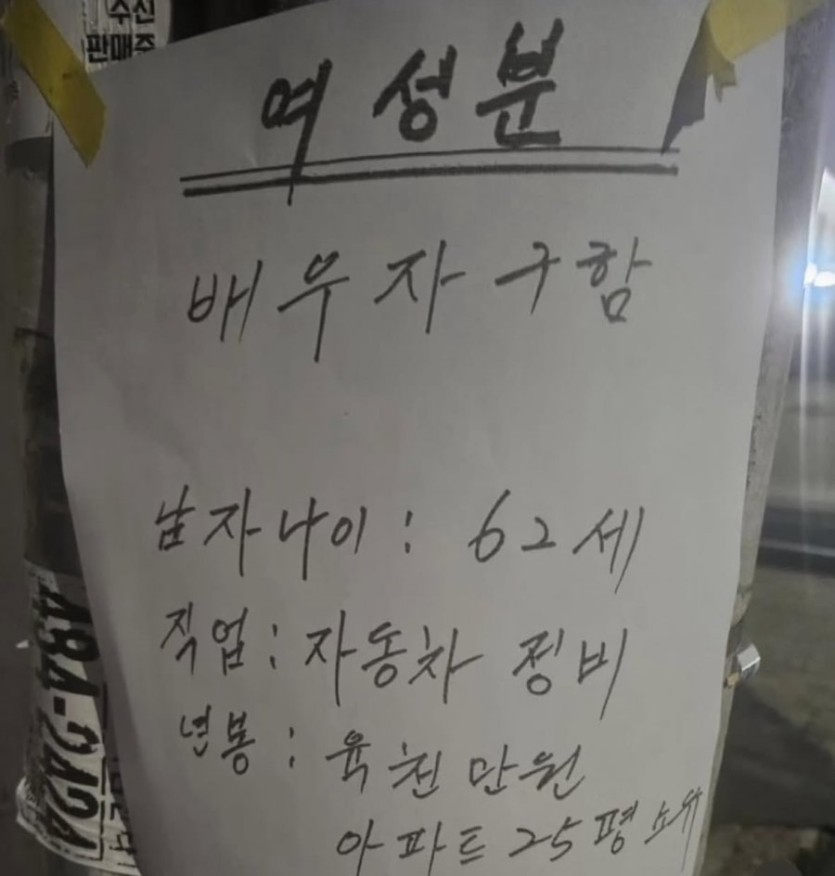 여성분
배우자구함
남자나이: 62세
직업: 자동차 정비
년봉: 육천만원
아파트 25평 소유
484-2424